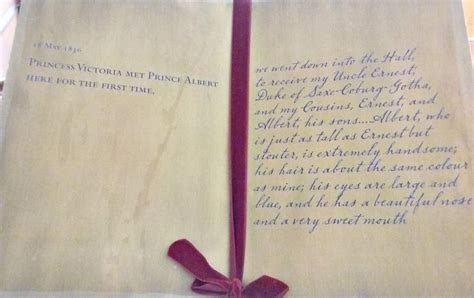 18 MAY 1836
PRINCESS VICTORIA MET PRINCE ALBERT
HERE FOR THE FIRST TIME.
we went down into the Hall,
to receive my Uncle Ernest,
Duke of Saxe-Coburg-Gotha,
and my Cousins, Ernest, and
Albert, his sons....Albert, who
is just as tall as Ernest but
stouter, is extremely handsome;
his hair is about the same colour
as mine; his eyes are large and
blue, and he has a beautiful nose
and a very sweet mouth